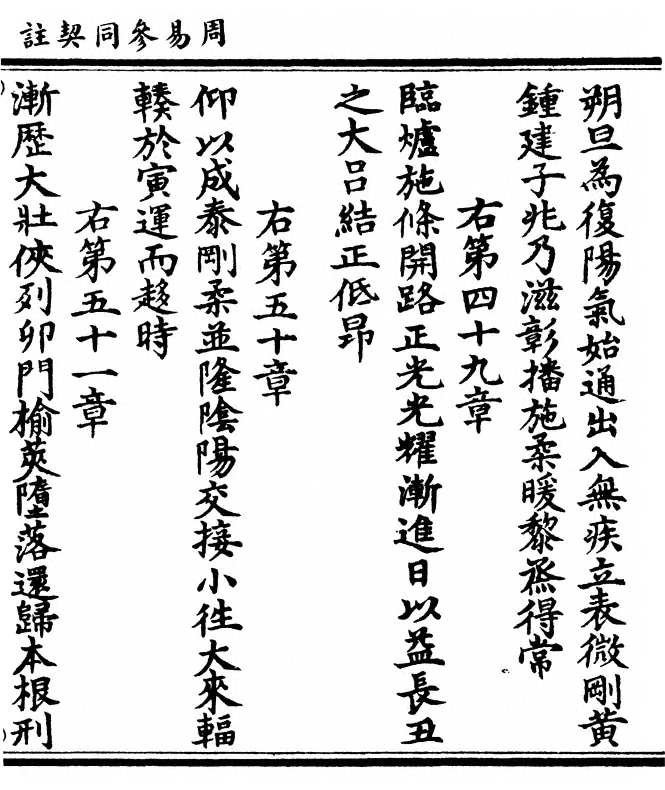 周易參同契註
朔旦為復陽氣始通出入無疾立表微剛黃
鍾建子兆乃滋彰播施柔暖黎烝得常
右第四十九章
臨爐施條開路正光光耀漸進日以益長丑
之大呂結正低昂
右第五十章
仰以成泰剛柔並隆陰陽交接小徃大來輻
輳於寅運而趍時
右第五十一章
漸歷大壯俠列卯門榆莢墮落還歸本根刑